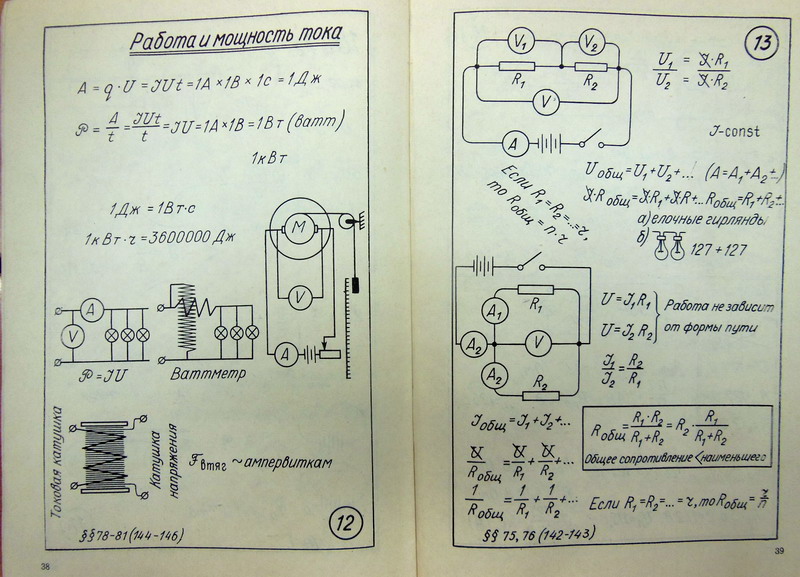 Работа и мощность тока
A = q·U = JUt = 1A × 1В × 1с = 1Дж
𝒫 = A/t = JUt/t = JU = 1A × 1В = 1Вт (ватт)
1кВт
1Дж = 1Вт·с
1кВт·ч = 3600000 Дж
M
V
A
A
V
𝒫 = JU
Ваттметр
Токовая катушка
Катушка напряжения
Fвтяг ~ ампервиткам
§§ 78-81 (144-146)
12
38
13
V1 V2
R1 R2
V
A
U1/U2 = J·R1/J·R2
J-const
Uобщ = U1 + U2 + ... (A = A1 + A2 + ...)
Если R1 = R2 = ... = r,
то Rобщ = n·r
J·Rобщ = J·R1 + J·R + ... Rобщ = R1 + R2 + ...
а) елочные гирлянды
б) 127 + 127
A1 R1
A2 V
A2 R2
U = J1R1
U = J2R2
Работа не зависит
от формы пути
J1/J2 = R2/R1
Jобщ = J1 + J2 + ...
U/Rобщ = U/R1 + U/R2 + ...
1/Rобщ = 1/R1 + 1/R2 + ...
Rобщ = R1·R2/R1+R2 = R2 · R1/R1+R2
Общее сопротивление < наименьшего
Если R1 = R2 = ... = r, то Rобщ = r/n
§§ 75, 76 (142-143)
39